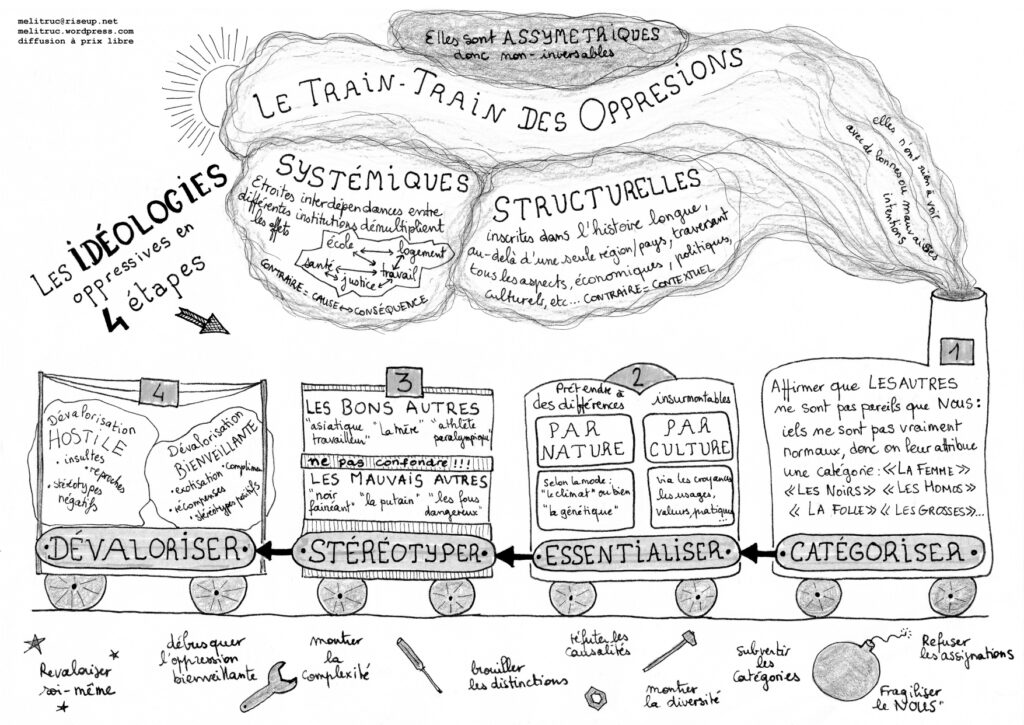 melitruc@riseup.net
melitruc.wordpress.com
diffusion à prix libre
Elles sont ASSYMETRIQUES
donc non-inversables
LE TRAIN-TRAIN DES OPPRESIONS
elles n'ont rien à voir
avec de bonnes ou mauvaises
intentions
SYSTÉMIQUES
Etroites interdépendances entre
différentes institutions démultiplient
les effets
école
logement
santé
travail
justice
CONTRAIRE = CAUSE ↔ CONSÉQUENCE
STRUCTURELLES
inscrites dans l'histoire longue,
au-delà d'une seule région/pays, traversent
tous les aspects, économiques, politiques,
culturels, etc... CONTRAIRE = CONTEXTUEL
LES IDÉOLOGIES
oppressives en
4 étapes
4
Dévalorisation
HOSTILE
• insultes
• reproches
• stéréotypes
négatifs
Dévalorisation
BIENVEILLANTE
• exotisation
• récompenses
• stéréotypes positifs
DÉVALORISER
3
LES BONS AUTRES
"asiatique
travailleur"
"La mère"
"athlète
paralympique"
ne pas confondre!!!
LES MAUVAIS AUTRES
"noir
fainéant"
"la putain"
"les fous
dangereux"
STÉRÉOTYPER
2
Prétendre à
des différences
insurmontables
PAR
NATURE
PAR
CULTURE
Selon la mode:
"le climat" ou bien
"la génétique"
via les croyances
les usages,
valeurs, pratiques...
ESSENTIALISER
1
Affirmer que LES AUTRES
ne sont pas pareils que NOUS:
iels ne sont pas vraiment
normaux, donc on leur attribue
une catégorie: «LA FEMME»
«LES NOIRS» «LES HOMOS»
«LA FOLLE» «LES GROSSES»...
CATÉGORISER
Revaloriser
soi-même
débusquer
l'oppression
bienveillante
montrer
la
complexité
brouiller
les distinctions
réfuter les
causalités
montrer
la diversité
Subvertir
les
catégories
Refuser
les assignations
Fragiliser
le "NOUS"